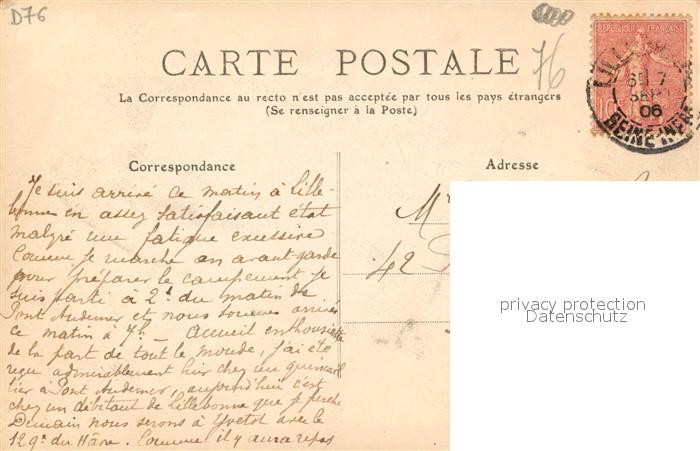 D76
76
CARTE POSTALE
La Correspondance au recto n'est pas acceptée par tous les pays étrangers
(Se renseigner à la Poste)
REPUBLIQUE FRANÇAISE
10
LILLE
6E 7
SEPT
06
SEINE INFRE
Correspondance
Je suis arrivé ce matin à Lille-
bonne en assez satisfaisant état
malgré une fatigue excessive
Comme je marche en avant-garde
pour préparer le campement je
suis parti à 2h du matin de
Pont Audemer et nous sommes arrivés
ce matin à 7h — Accueil enthousiaste
de la part de tout le monde, j'ai été
reçu admirablement hier chez un quincail
lier à Pont Audemer, aujourd'hui c'est
chez un débitant de Lillebonne que je perche
Demain nous serons à Yvetot avec le
129e du Hâvre. Comme il y aura repos
Adresse
42
privacy protection
Datenschutz